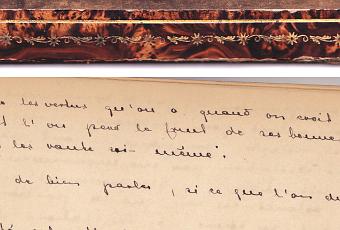 les vertus qu'on a quand on croit
l'on perd le fruit de ses bonne
les vante soi-même.
de bien parler, si ce que l'on d